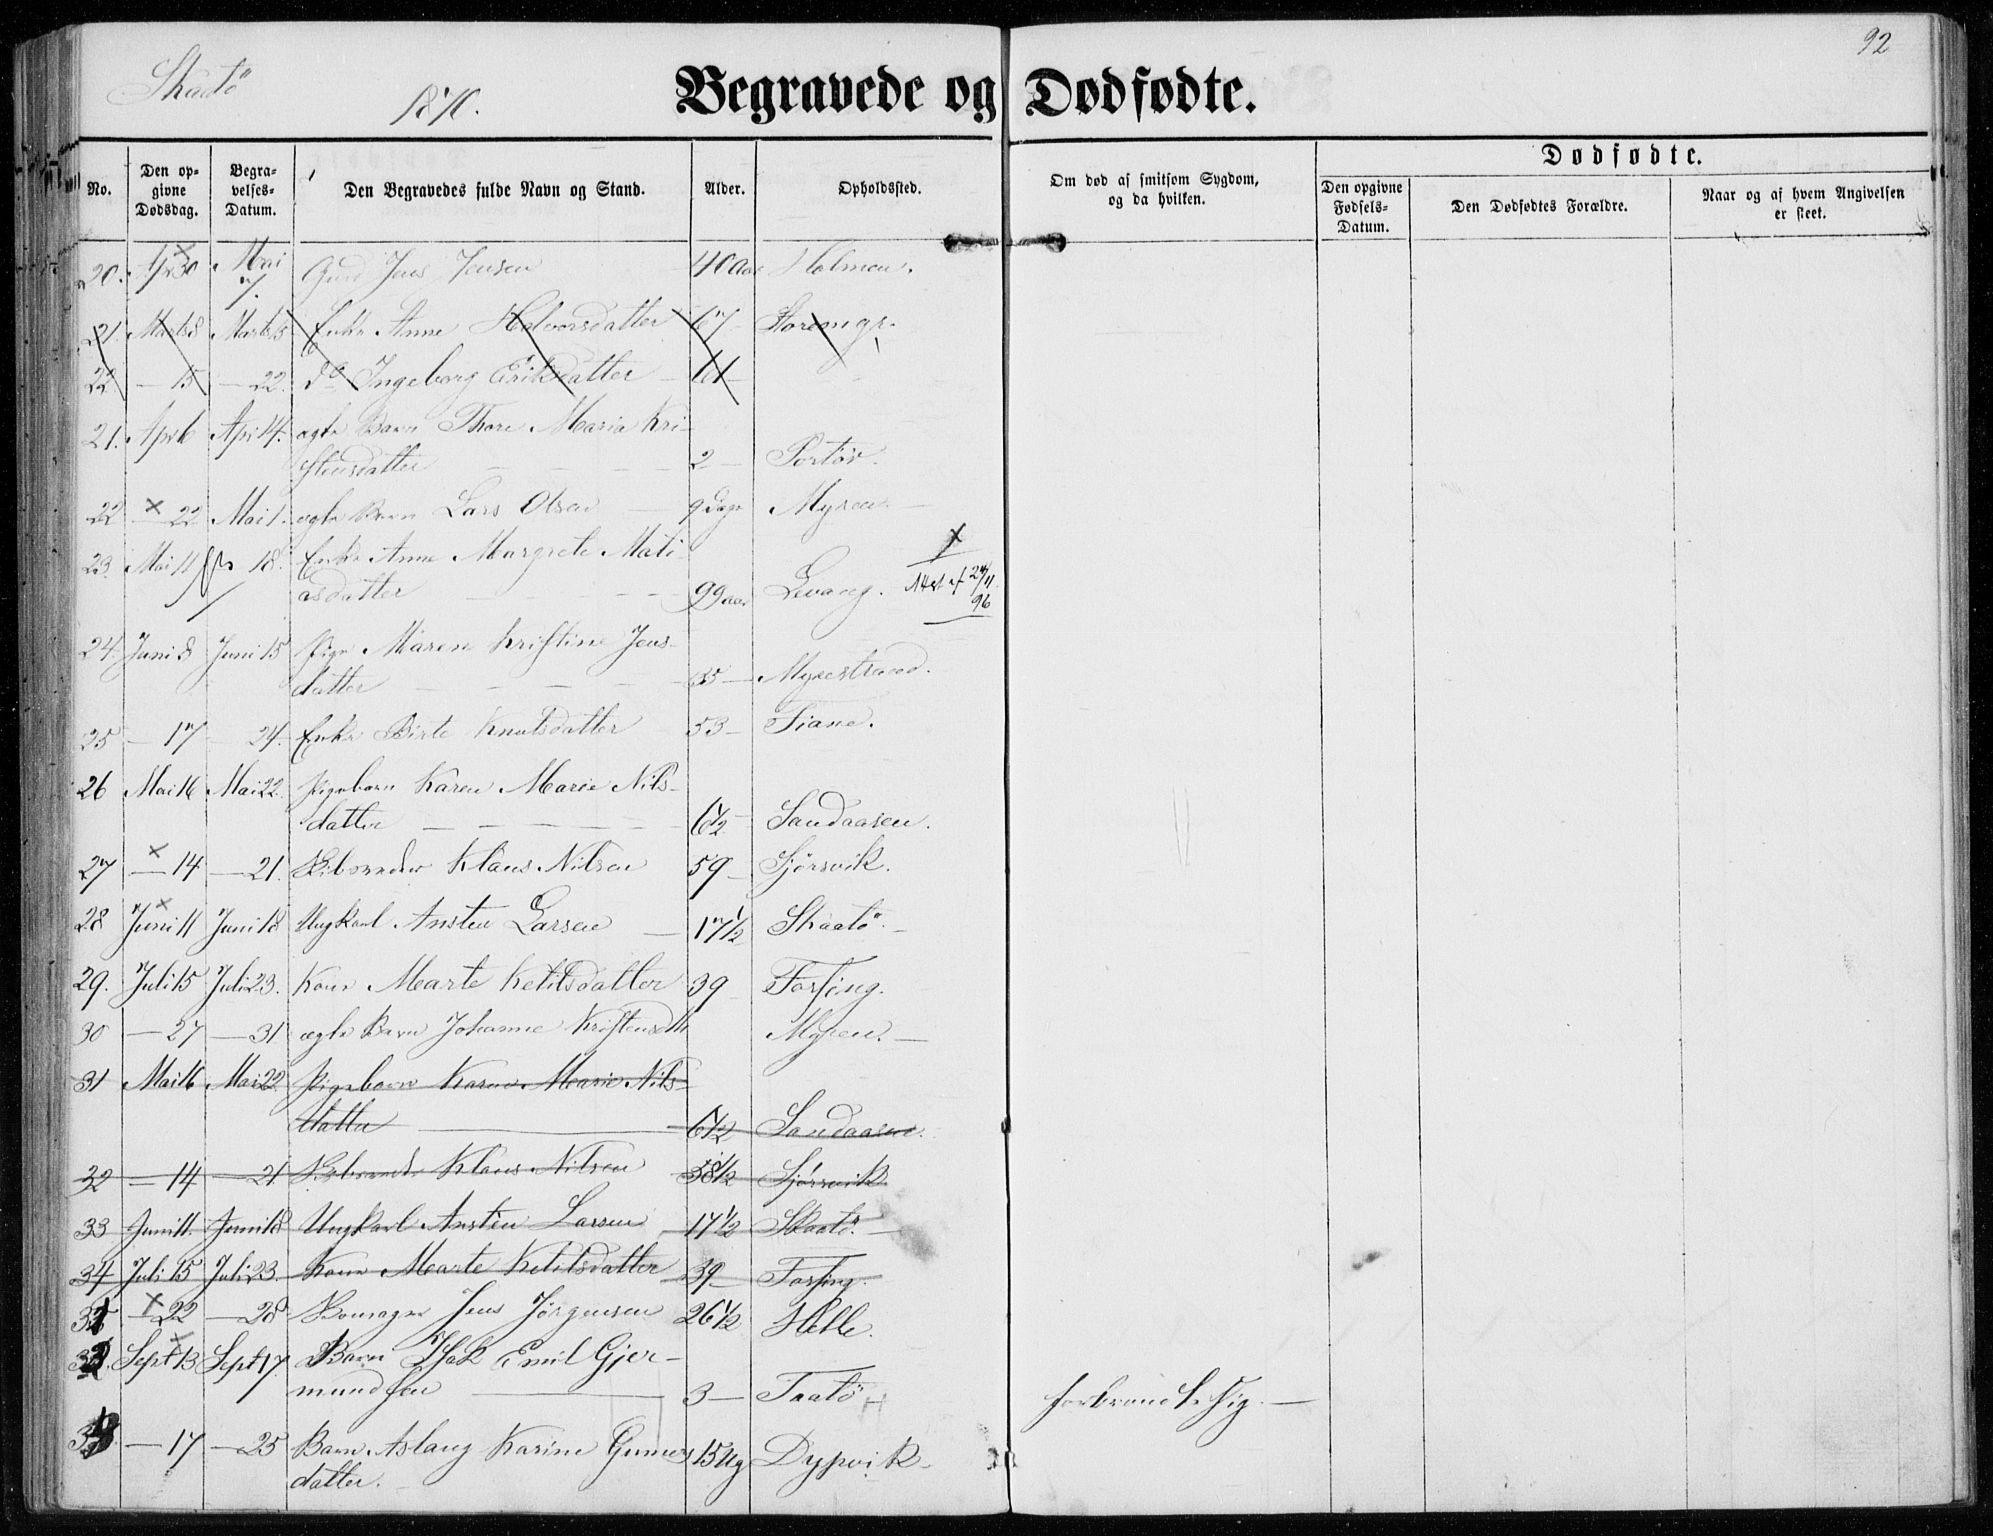 92
Skaatö
1870.
Begravede og Dødfødte.
No. Den opgivne Dødsdag. Begravelses-Datum. Den Begravedes fulde Navn og Stand. Alder. Opholdssted. Om død af smitsom Sygdom, og da hvilken. Dødfødte. Den opgivne Fødsels-Datum. Den Dødfødtes Forældre. Naar og af hvem Angivelsen er skeet.
20. Apr 30 Mai 7. Gmd Jens Jensen 40 Aar Holmen.
21. Marts 8 Marts 15 Enke Anne Halvorsdatter 67 -
22 — 15 — 22. do Ingeborg Eriksdatter — 61 —
21. Apr 6 Apr 14. ægte Barn Thore Maria Kri-
stensdatter — — — 2 — Portør.
22 × — 22 Mai 1. ægte Barn Lars Olsen — 9 Dage Myren. —
23. Mai 11 18. Enke Anne Margrete Mati-
asdatter — — — 99 aar Levang. Att. af 24/11 96
24. Juni 8 Juni 15 Pige Maren Kristine Jens-
datter — — — — 35 — Myrestrand.
25 — 17 — 24. Enke Birte Knutsdatter 53 — Tiane.
26 Mai 16 Mai 22. Pigebarn Karen Marie Nils-
datter — — — — 6 1/2 Sandaasen.
27 × — 14 — 21. Klaus Nilsen 59 — Sjørsvik.
28 × Juni 11 Juni 18 Ungkarl Ansten Larsen — 17 1/2 Skaatö. —
29. Juli 15 Juli 23. Kone Marte Ketilsdatter 39 Fossing.
30 — 27 — 31 ægte Barn Johanne Kristensdtr Myren. —
31 Mai 16 Mai 22. Pigebarn Karen Marie Nils-
datter — 6 1/2 Sandaasen.
32 — 14 — 21 Klaus Nilsen 58 1/2 Sjørsvik
33 Juni 11. Juni 18 Ungkarl Ansten Larsen — 17 1/2 Skaatö. —
34 Juli 15 Juli 23. Kone Marte Ketilsdatter 39 — Fossing.
31 × — 22 — 28 Jens Jørgensen 26 1/2 Helle.
32. Sept 13 Sept 17. Barn Isak Emil Gjer-
mundsen — 3 — Taatö forbrændt sig. —
33. — 17 — 25 Barn Aslaug Karine Gunners 15 Ug Dypvik —
datter. —